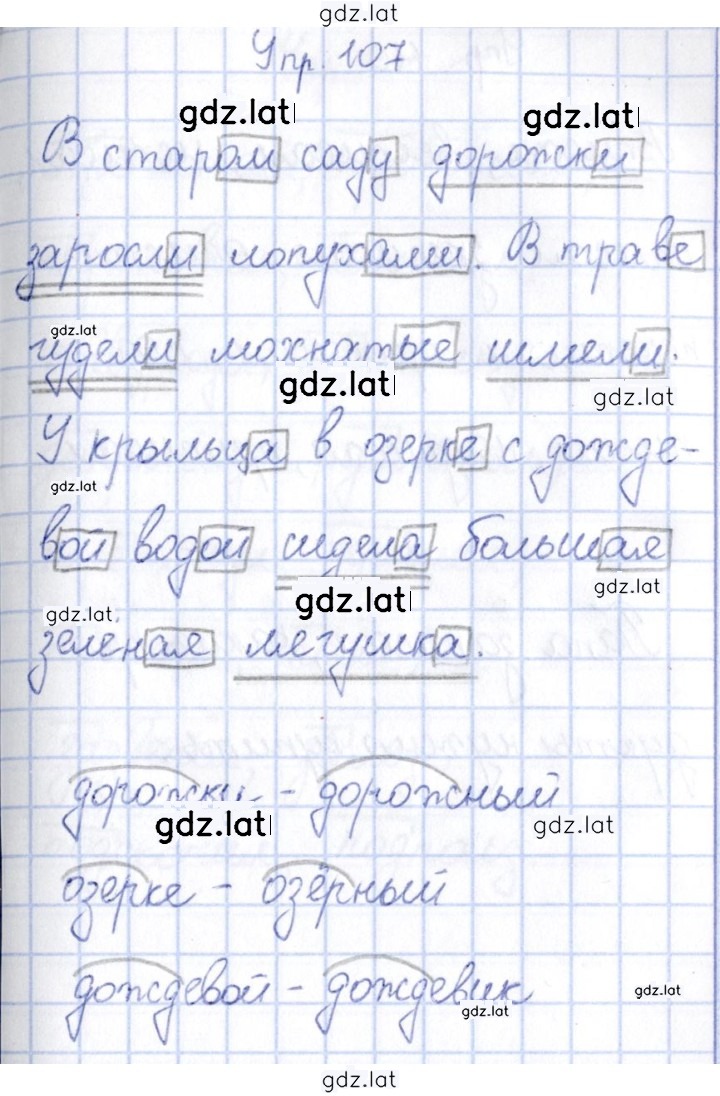 gdz.lat
Упр. 107
gdz.lat gdz.lat
В старом саду дорожки
заросли лопухами. В траве
gdz.lat
гудели мохнатые шмели.
gdz.lat gdz.lat
У крыльца в озерке с дожде-
gdz.lat
вой водой сидела большая
gdz.lat gdz.lat gdz.lat
зеленая лягушка.
дорожки - дорожный
gdz.lat gdz.lat
озерке - озёрный
дождевой - дождевик
gdz.lat gdz.lat
gdz.lat